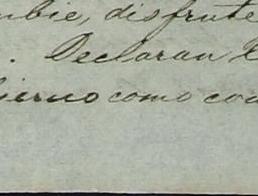 mbie, disfrute
. Declaran
bierno como